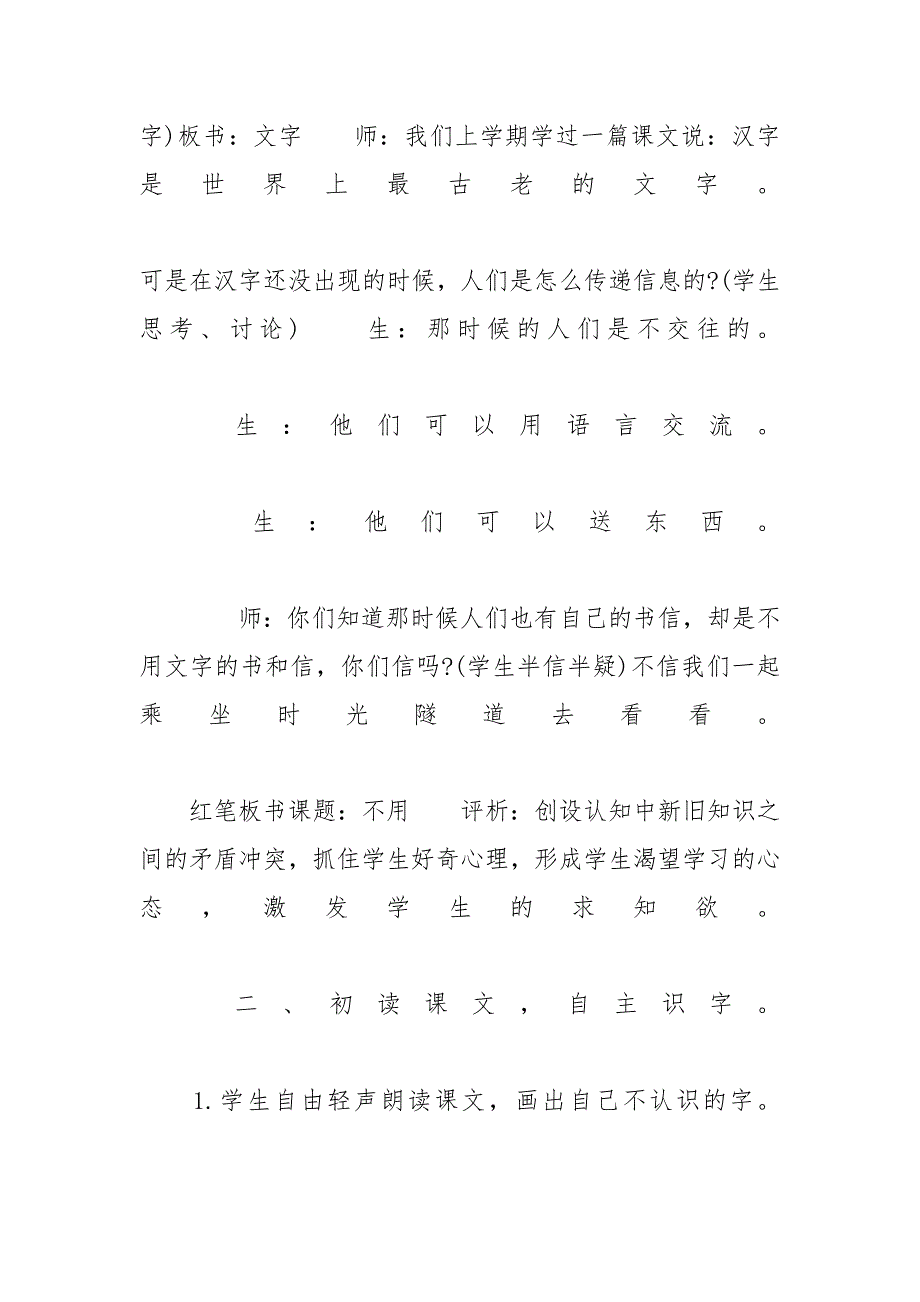 字)板书：文字　　师：我们上学期学过一篇课文说：汉字
是世界上最古老的文字。
可是在汉字还没出现的时候，人们是怎么传递信息的?(学生
思考、讨论)　　生：那时候的人们是不交往的。
生：他们可以用语言交流。
生：他们可以送东西。
师：你们知道那时候人们也有自己的书信，却是不
用文字的书和信，你们信吗?(学生半信半疑)不信我们一起
乘坐时光隧道去看看。
红笔板书课题：不用　　评析：创设认知中新旧知识之
间的矛盾冲突，抓住学生好奇心理，形成学生渴望学习的心
态，激发学生的求知欲。
二、初读课文，自主识字。
1.学生自由轻声朗读课文，画出自己不认识的字。